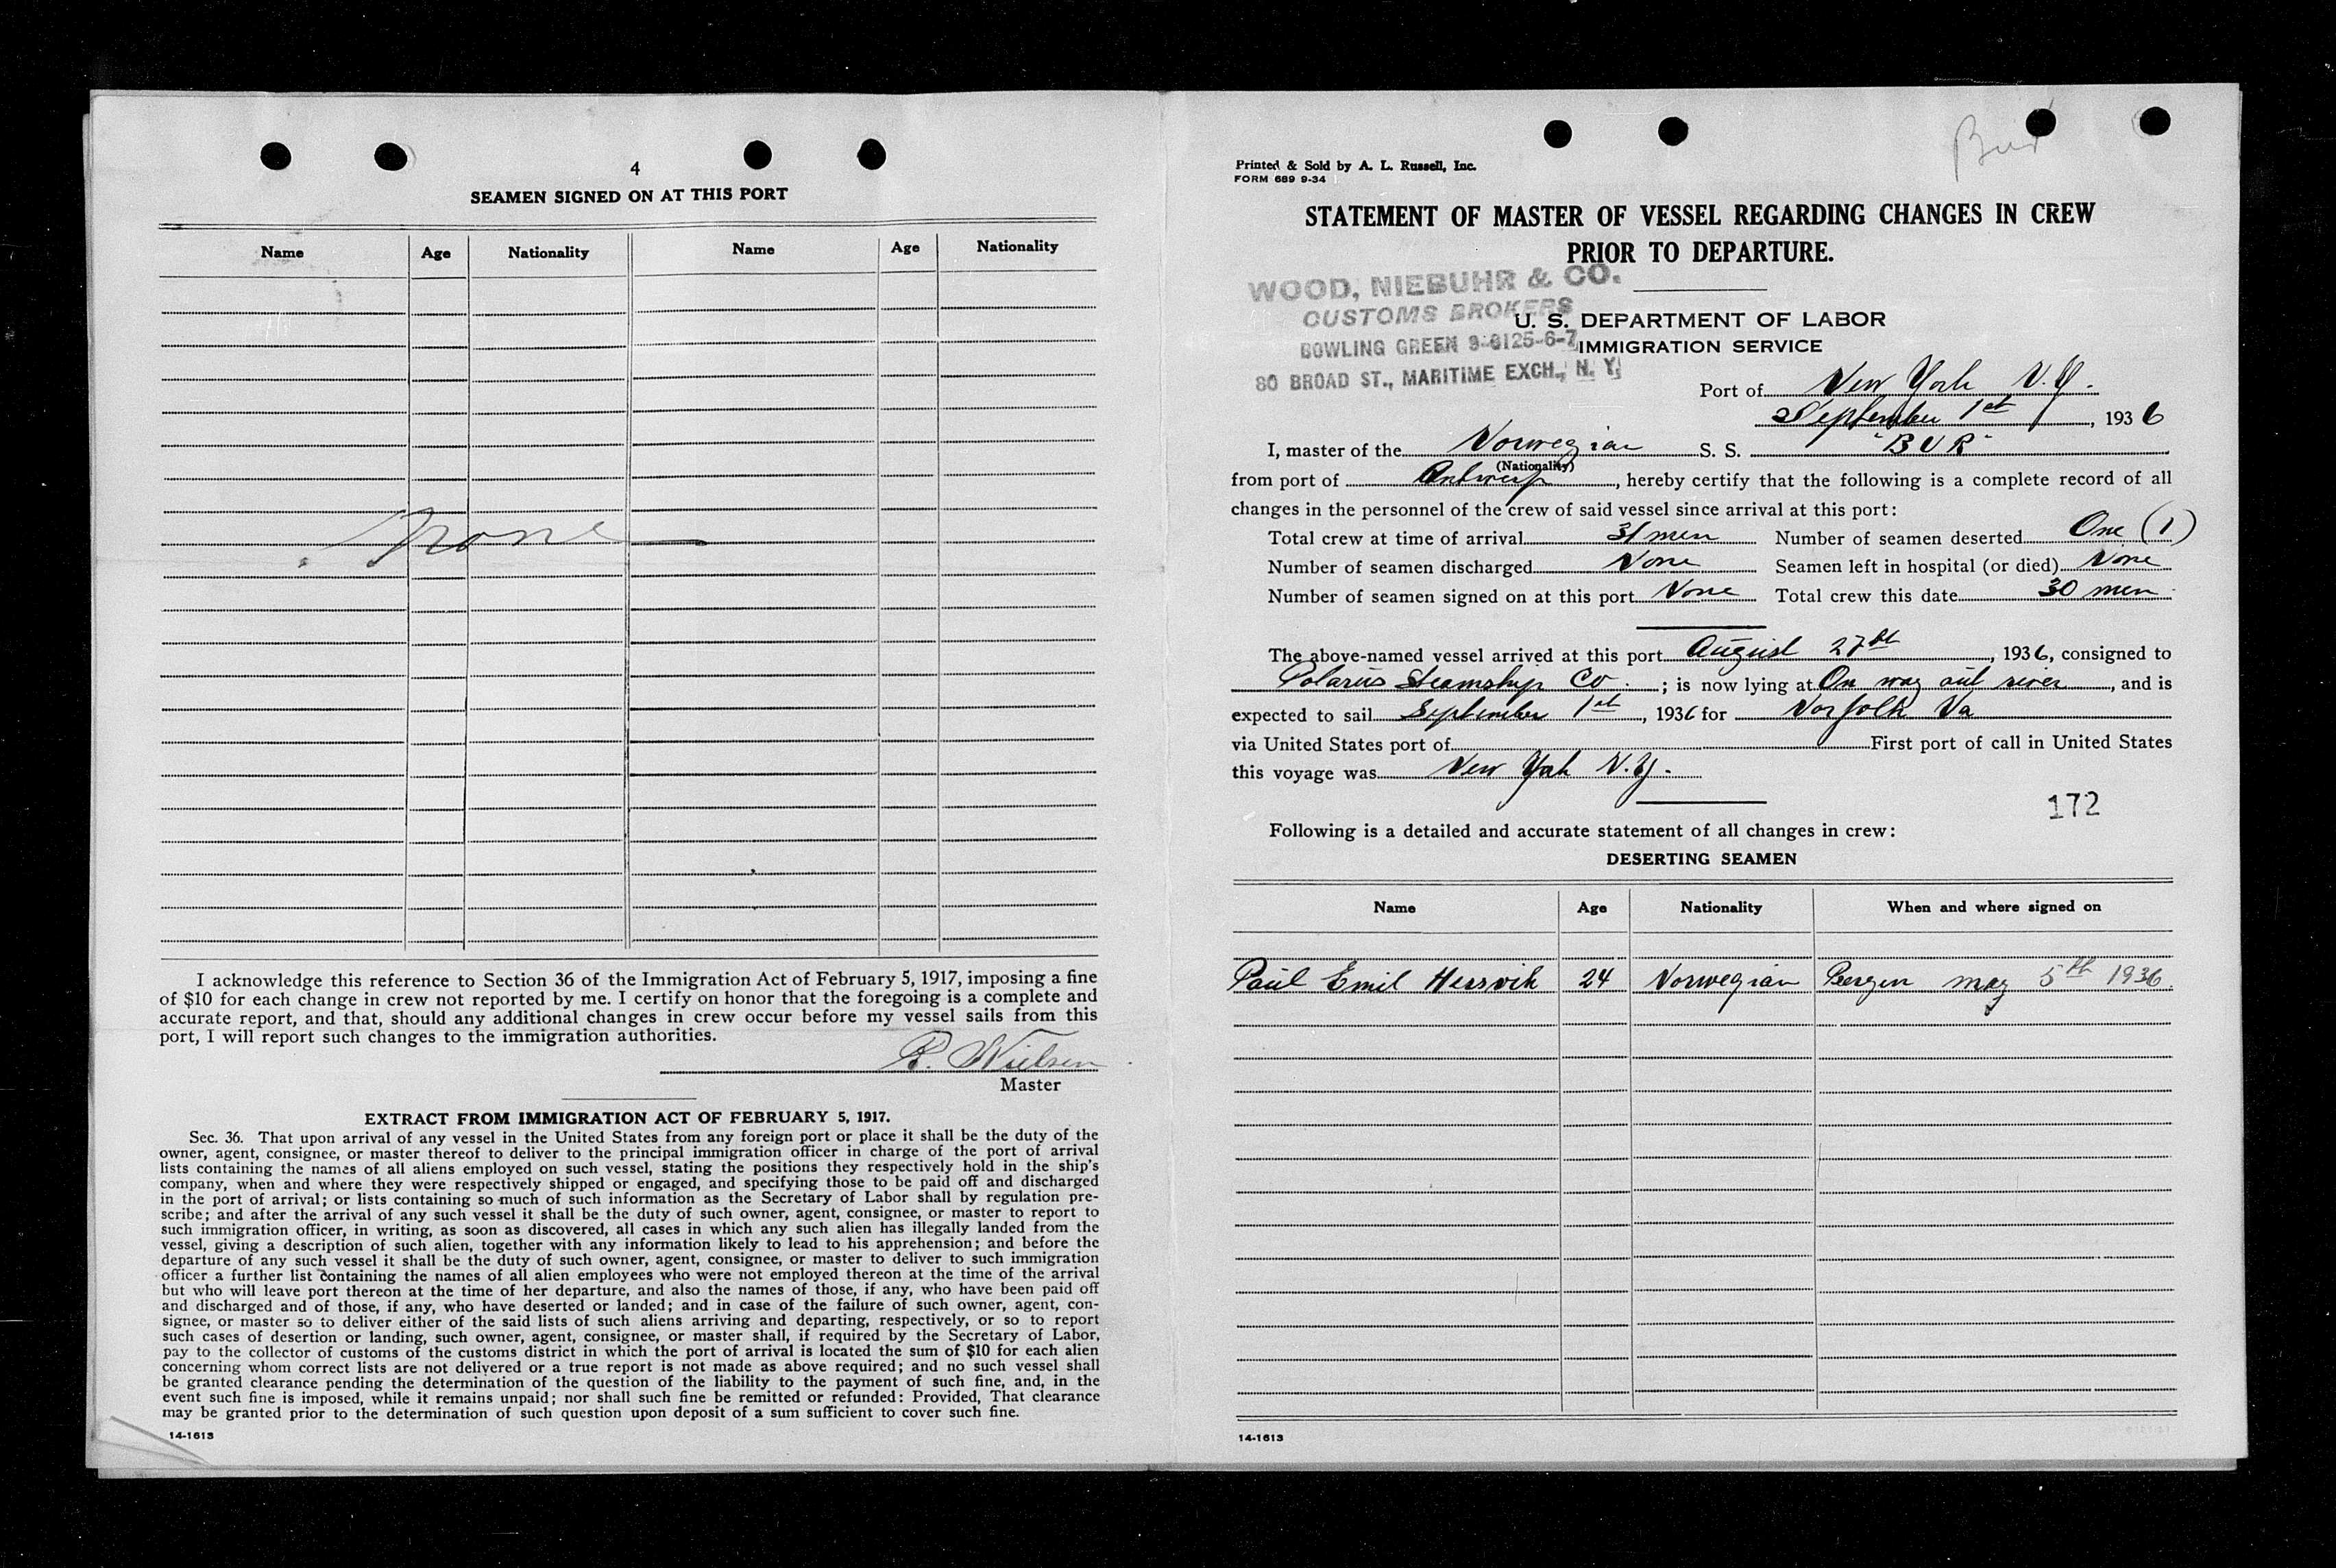 4
SEAMEN SIGNED ON AT THIS PORT
Name Age Nationality Name Age Nationality
None
I acknowledge this reference to Section 36 of the Immigration Act of February 5, 1917, imposing a fine
of $10 for each change in crew not reported by me. I certify on honor that the foregoing is a complete and
accurate report, and that, should any additional changes in crew occur before my vessel sails from this
port, I will report such changes to the immigration authorities.
Nielsen
Master
EXTRACT FROM IMMIGRATION ACT OF FEBRUARY 5, 1917.
Sec. 36. That upon arrival of any vessel in the United States from any foreign port or place it shall be the duty of the
owner, agent, consignee, or master thereof to deliver to the principal immigration officer in charge of the port of arrival
lists containing the names of all aliens employed on such vessel, stating the positions they respectively hold in the ship's
company, when and where they were respectively shipped or engaged, and specifying those to be paid off and discharged
in the port of arrival; or lists containing so much of such information as the Secretary of Labor shall by regulation pre-
scribe; and after the arrival of any such vessel it shall be the duty of such owner, agent, consignee, or master to report to
such immigration officer, in writing, as soon as discovered, all cases in which any such alien has illegally landed from the
vessel, giving a description of such alien, together with any information likely to lead to his apprehension; and before the
departure of any such vessel it shall be the duty of such owner, agent, consignee, or master to deliver to such immigration
officer a further list containing the names of all alien employees who were not employed thereon at the time of the arrival
but who will leave port thereon at the time of her departure, and also the names of those, if any, who have been paid off
and discharged and of those, if any, who have deserted or landed; and in case of the failure of such owner, agent, con-
signee, or master so to deliver either of the said lists of such aliens arriving and departing, respectively, or so to report
such cases of desertion or landing, such owner, agent, consignee, or master shall, if required by the Secretary of Labor,
pay to the collector of customs of the customs district in which the port of arrival is located the sum of $10 for each alien
concerning whom correct lists are not delivered or a true report is not made as above required; and no such vessel shall
be granted clearance pending the determination of the question of the liability to the payment of such fine, and, in the
event such fine is imposed, while it remains unpaid; nor shall such fine be remitted or refunded: Provided, That clearance
may be granted prior to the determination of such question upon deposit of a sum sufficient to cover such fine.
14-1613
Bur
Printed & Sold by A. L. Russell, Inc.
FORM 689 9-34
STATEMENT OF MASTER OF VESSEL REGARDING CHANGES IN CREW
PRIOR TO DEPARTURE.
WOOD, NIEBUHR & CO.
CUSTOMS BROKERS
BOWLING GREEN 9-8125-6-7
80 BROAD ST., MARITIME EXCH., N. Y.
U. S. DEPARTMENT OF LABOR
IMMIGRATION SERVICE
Port of New York N.Y.
September 1st, 1936
I, master of the Norwegian S. S. "BUR"
(Nationality)
from port of Antwerp, hereby certify that the following is a complete record of all
changes in the personnel of the crew of said vessel since arrival at this port:
Total crew at time of arrival 31 men Number of seamen deserted One (1)
Number of seamen discharged None Seamen left in hospital (or died) None
Number of seamen signed on at this port None Total crew this date 30 men
The above-named vessel arrived at this port August 27th, 1936, consigned to
Polarus Steamship Co.; is now lying at On way out river, and is
expected to sail September 1st, 1936 for Norfolk Va
via United States port of First port of call in United States
this voyage was New York N.Y.
172
Following is a detailed and accurate statement of all changes in crew:
DESERTING SEAMEN
Name Age Nationality When and where signed on
Paul Emil Hessvik 24 Norwegian Bergen May 5th 1936
14-1613